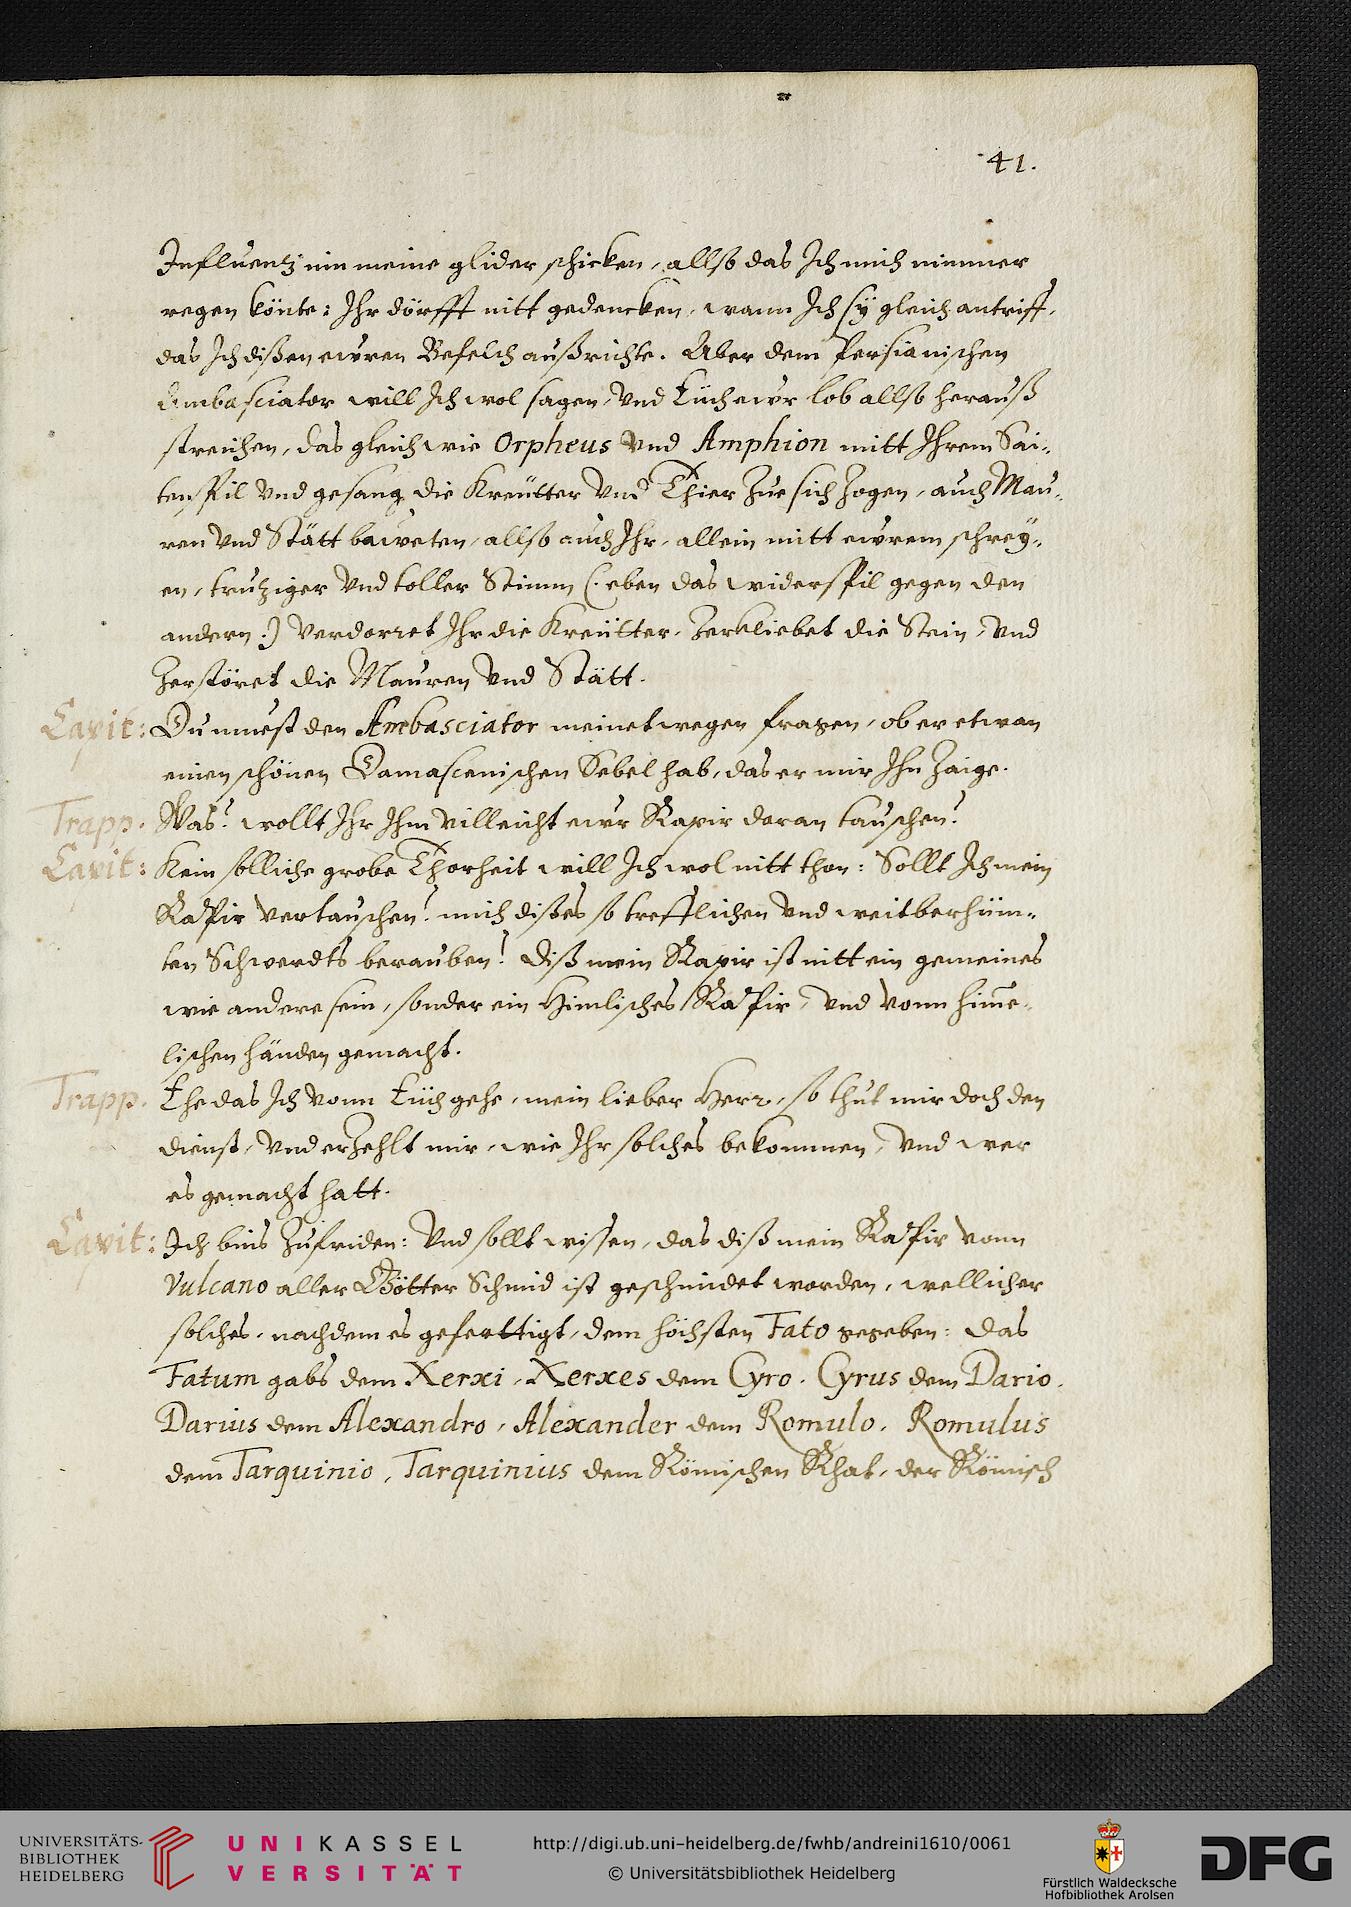 41.
Influentz inn meine glider schicken, allso das Ich mich nimmer
regen könte: Ihr dörfft nitt gedencken, wann Ich sÿ gleich antriff,
das Ich dißen ewren Befelch außrichte. Aber dem Persianischen
Ambasciator will Ich wol sagen, vnd Eüch ewr lob allso herauß
streichen, das gleich wie Orpheus vnd Amphion mitt Ihrem Sai-
tenspil vnd gesang die Kreütter vnd Thier zue sich zogen, auch Mau-
ren vnd Stätt baweten, allso auch Ihr, allein mitt ewrem schreÿ-
en, trutziger vnd toller Stimm (: eben das widerspil gegen den
andern :) verdorret Ihr die Kreütter, zerkliebet die Stein, vnd
zerstöret die Mauren vnd Stätt.
Capit: Du muest den Ambasciator meinetwegen fragen, ob er etwan
einen schönen Damascenischen Sebel hab, das er mir Ihn zaige.
Trapp. Was? wollt Ihr Ihm villeicht ewr Rapir daran tauschen?
Capit: Kein solliche grobe Thorheit will Ich wol nitt thon: Sollt Ich mein
Rapir vertauschen? mich dißes so trefflichen vnd weitberhüm-
ten Schwerdts berauben! Diß mein Rapir ist nitt ein gemeines
wie andere sein, sonder ein Himlisches Rapir, vnd vonn him̅e-
lischen händen gemacht.
Trapp. Ehe das Ich vonn Eüch gehe, mein lieber Herr, so thut mir doch den
dienst, vnd erzehlt mir, wie Ihr solches bekommen, vnd wer
es gemacht hatt.
Capit: Ich bins zufriden: Vnd sollt wissen, das diß mein Rapir vonn
Vulcano aller Götter Schmid ist geschmidet worden, wellicher
solches, nachdem es gefertttigt, dem höchsten Fato gegeben: Das
Fatum gabs dem Xerxi, Xerxes dem Cyro, Cyrus dem Dario,
Darius dem Alexandro, Alexander dem Romulo, Romulus
dem Tarquinio, Tarquinius dem Römischen Rhat, der Römisch
UNIVERSITÄTS-
BIBLIOTHEK
HEIDELBERG
UNIKASSEL
VERSITÄT
http://digi.ub.uni-heidelberg.de/fwhb/andreini1610/0061
© Universitätsbibliothek Heidelberg
Fürstlich Waldecksche
Hofbibliothek Arolsen
DFG